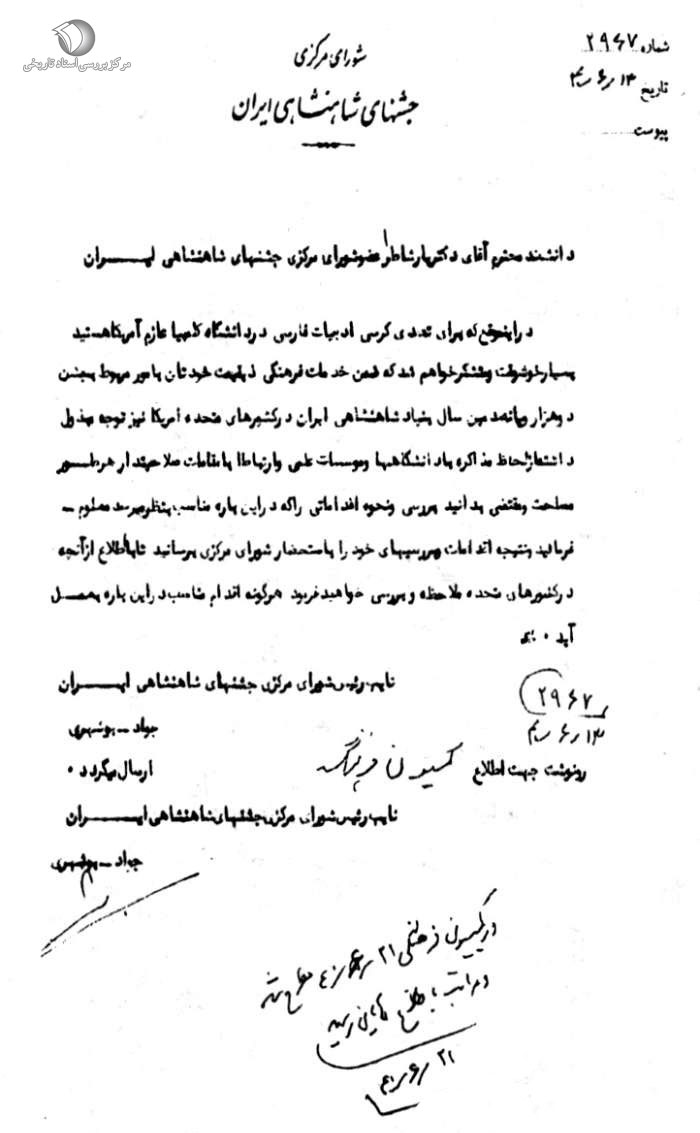 مرکز بررسی اسناد تاریخی
شماره ۲۹۶۷
تاریخ ۱۳ر۶ر۴۰
پیوست
شورای مرکزی
جشنهای شاهنشاهی ایران
دانشمند محترم آقای دکتریارشاطر عضوشورای مرکزی جشنهای شاهنشاهی ایران
دراینموقع که برای تصدی کرسی ادبیات فارسی دردانشگاه کلمبیا عازم آمریکاهستید
بسیارخوشوقت ومتشکرخواهم شد که ضمن خدمات فرهنگی ذیقیمت خودتان بامور مربوط بجشن
دوهزار وپانصدمین سال بنیاد شاهنشاهی ایران درکشورهای متحده آمریکا نیز توجه مبذول
داشته ازلحاظ مذاکره بادانشگاهها وموسسات علمی وارتباط بامقامات صلاحیتدار هرطور
مصلحت ومقتضی بدانید بررسی ونحوه اقداماتی راکه دراین باره مناسب بنظرمیرسد معلوم
فرمائید ونتیجه اقدامات وبررسیهای خود را باستحضار شورای مرکزی برسانید تابااطلاع ازآنچه
درکشورهای متحده ملاحظه و بررسی خواهیدفرمود هرگونه اقدام مناسب دراین باره بعمل
آید ۰
نایب رئیس شورای مرکزی جشنهای شاهنشاهی ایران
جواد ـ بوشهری
۲۹۶۷
۱۳ر۶ر۴۰
رونوشت جهت اطلاع کمیسیون فرهنگ ارسال میگردد ۰
نایب رئیس شورای مرکزی جشنهای شاهنشاهی ایران
جواد ـ بوشهری
در کمیسیون فرهنگی ۲۱ر۶ر۴۰ مطرح شد
و مراتب باطلاع آقایان رسید
۲۱ر۶ر۴۰